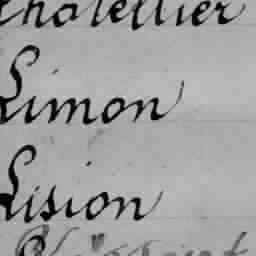 Chatellier
Limon
Lision